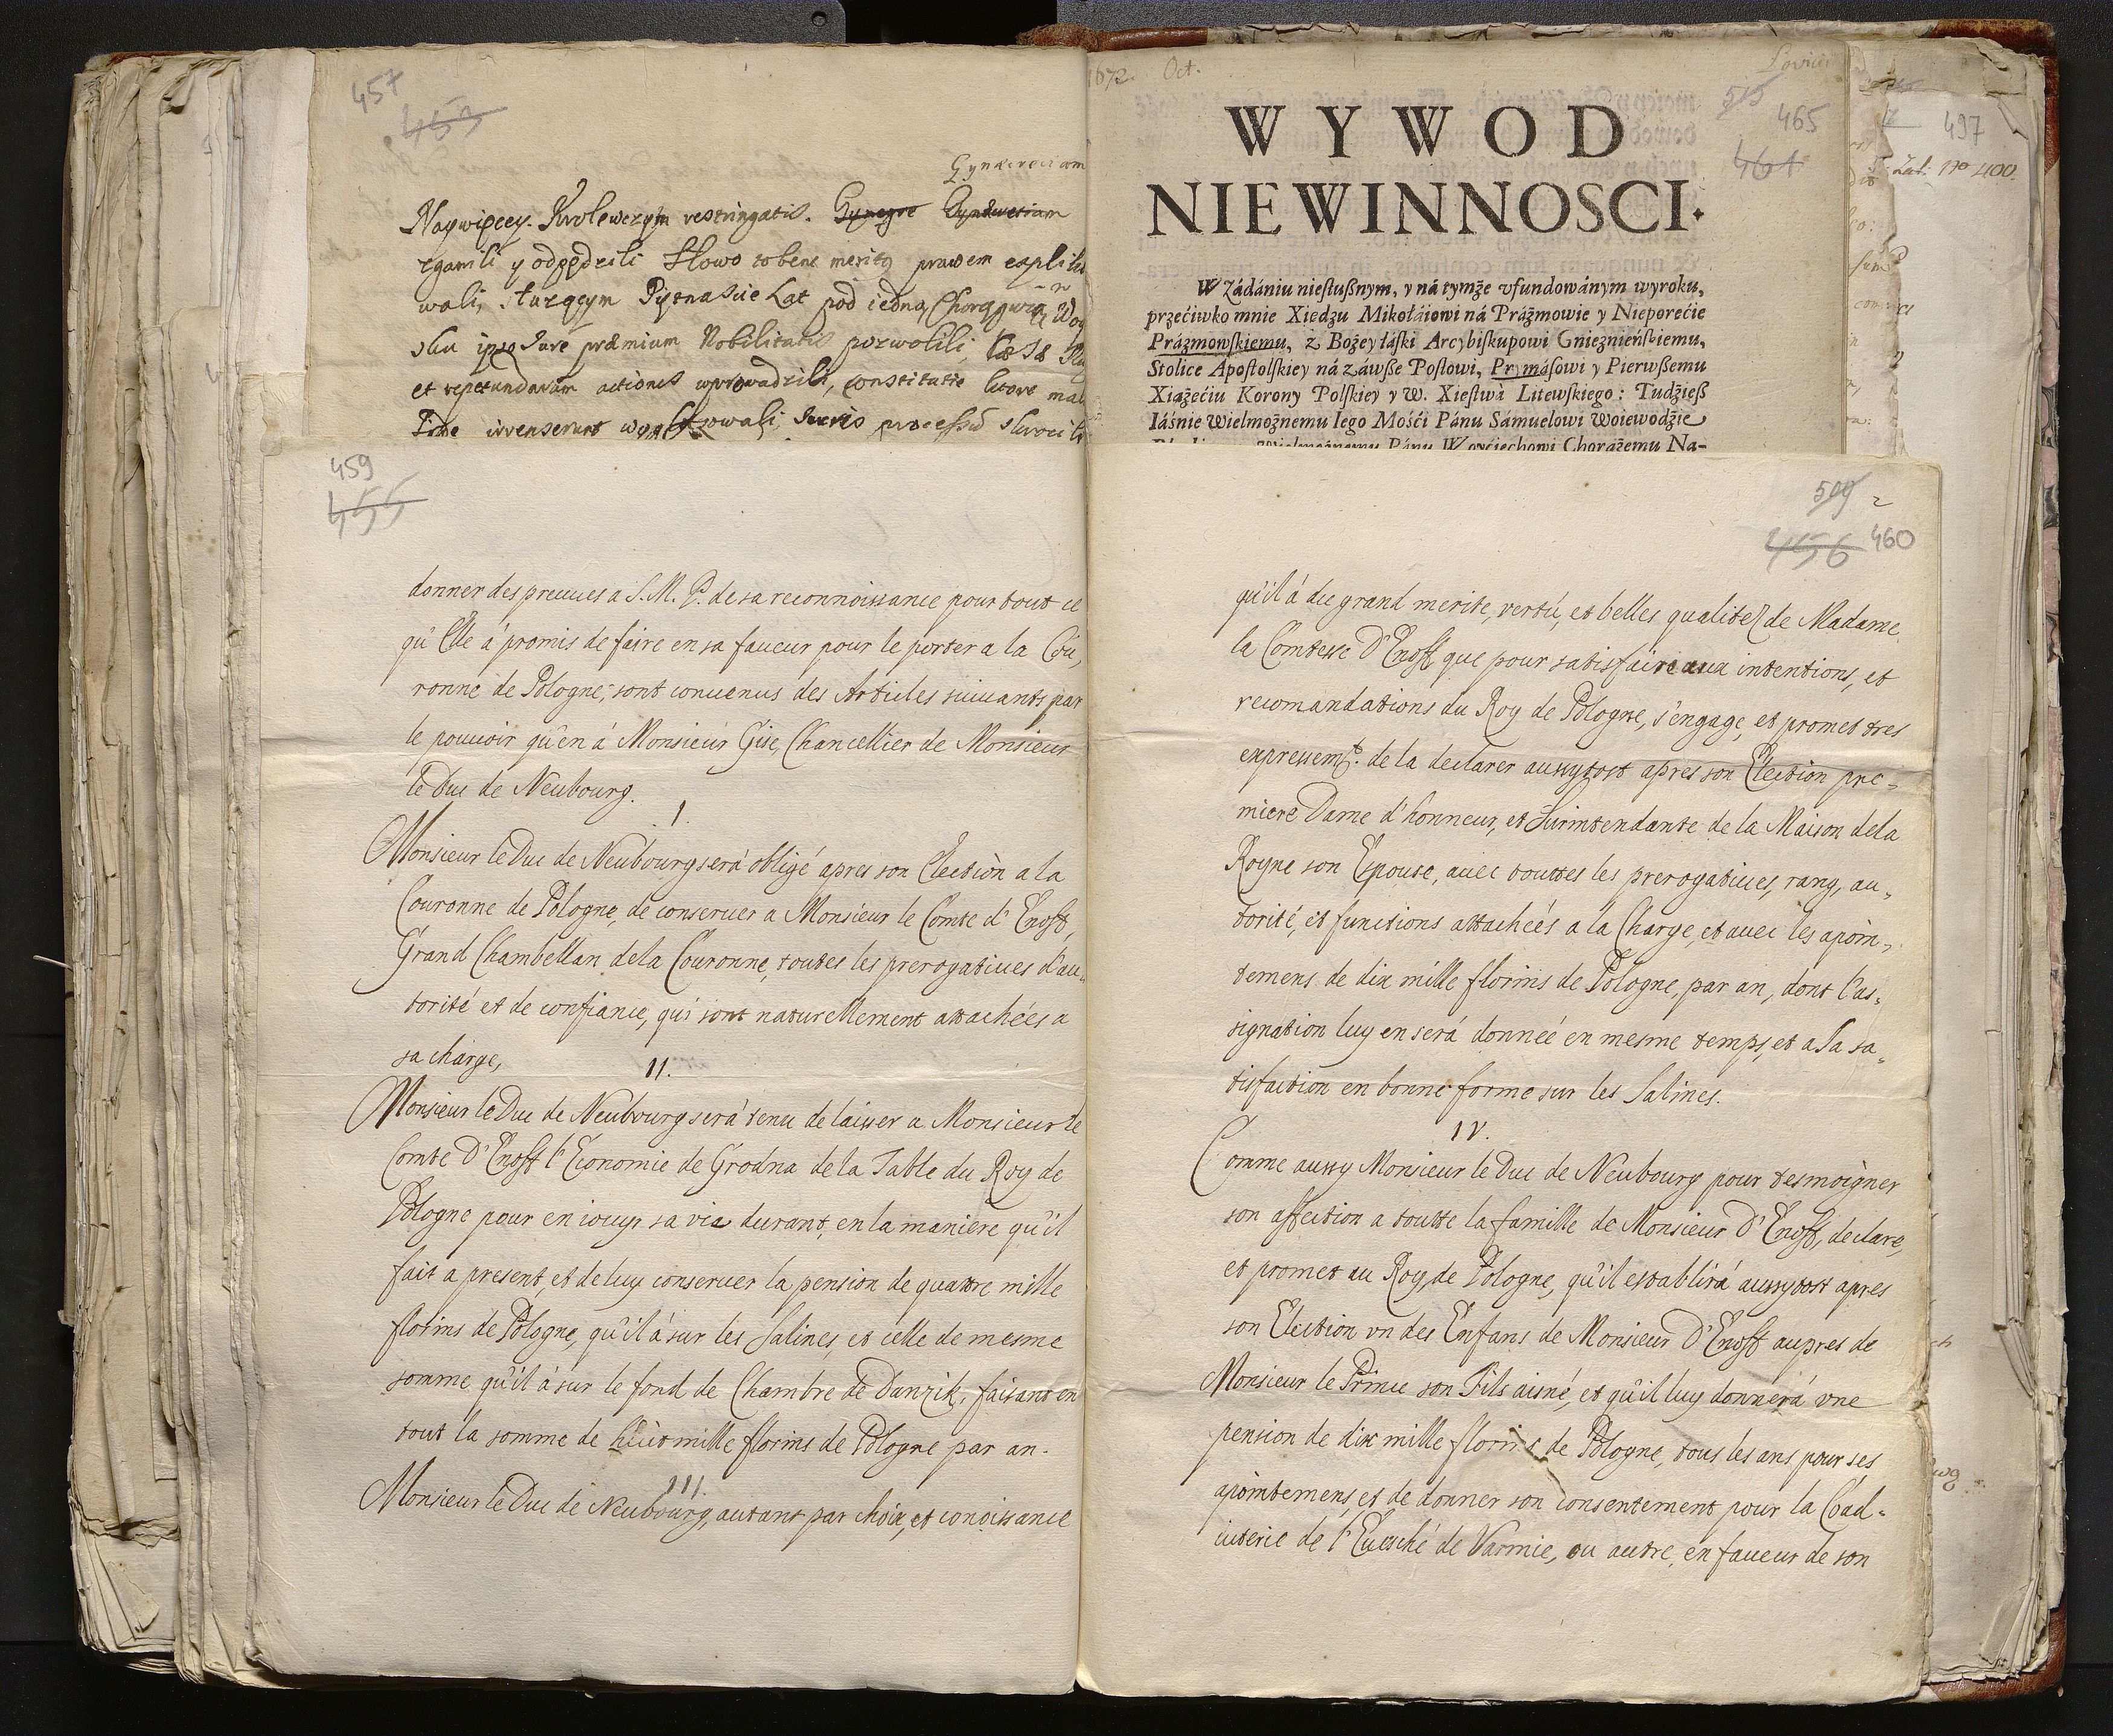 457
453
Gynæceum
Naywięcey. Krolewczym restringatis.
zganili y odpędzili Słowo to bene merito prawem expliko
wali, sturgcym Piętnascie Lat pod iedną Chorągwią Woy
sku ipso Jure præmium Nobilitatis pozwolili,
et repetundarum actiones wprowadzili, constitutie
irrenserunt Juris processu skrocili
459
455
donner des preuues a S. M. P. de sa reconnoissance pour tout ce
qu'Elle à promis de faire en sa faueur pour le porter a la Cou,
ronne de Pologne; sont conuenus des Articles suiuants par
le pouuoir qu'en à Monsieur Gise, Chancellier de Monsieur
le Duc de Neubourg.
I.
Monsieur le Duc de Neubourg serà obligé apres son Election a la
Couronne de Pologne, de conseruer a Monsieur le Comte d'Enoff,
Grand Chambellan de la Couronne, toutes les prerogatiues d'au-
torité et de confiance, qui sont naturellement attachées a
sa charge,
II.
Monsieur le Duc de Neubourg serà tenu de laisser a Monsieur le
Comte D'Enoff l'Economie de Grodna de la Table du Roy de
Pologne pour en iouyr sa vie durant, en la maniere qu'il
fait a present, et de luy conseruer la pension de quattre mille
florins de Pologne, qu'il à sur les Salines, et celle de mesme
somme qu'il à sur le fond de Chambre de Danzik, faisant en
tout la somme de huit mille florins de Pologne par an.
III.
Monsieur le Duc de Neubourg, autant par choix, et conoissance
1672. Oct.
Lovicii
515
465
461
WYWOD
NIEWINNOSCI.
W Zádániu niesłußnym, y ná tymże vfundowánym wyroku,
przećiwko mnie Xiedzu Mikołáiowi ná Práżmowie y Nieporećie
Prázmowskiemu, z Bożey łáski Arcybiskupowi Gnieznieńskiemu,
Stolice Apostolskiey ná záwße Posłowi, Prymásowi y Pierwßemu
Xiażećiu Korony Polskiey y W. Xiestwá Litewskiego: Tudzieß
Iáśnie Wielmożnemu Iego Mośći Pánu Sámuelowi Woiewodzie
Wielmożnemu Pánu Woyćiechowi Chorążemu Na-
497
Zal. no 400.
509
2
456 460
qu'il à du grand merite, vertù, et belles qualitez de Madame
la Comtesse D'Enoff que pour satisfaire aux intentions, et
recomandations du Roy de Pologne, s'engage, et promet tres
expressemt. de la declarer aussytost apres son Election pre-
miere Dame d'honneur, et Surintendante de la Maison de la
Royne son Espouse, auec touttes les prerogatiues, rang, au-
torité, et functions attachées a la Charge, et auec les apoin-
temens de dix mille florins de Pologne, par an, dont l'as-
signation luy en serà donnée en mesme temps, et a sa sa-
tisfaction en bonne forme sur les Salines.
IV.
Comme aussy Monsieur le Duc de Neubourg pour tesmoigner
son affection a toutte la famille de Monsieur D'Enoff, declare,
et promet au Roy de Pologne, qu'il establirà aussytost apres
son Election vn des Enfans de Monsieur D'Enoff aupres de
Monsieur le Prince son Fils aisné, et qu'il luy donnerà vne
pension de dix mille florins de Pologne, tous les ans pour ses
apointemens, et de donner son consentement pour la Coad-
iuterie de l'Euesché de Varmie, ou autre, en faueur de son